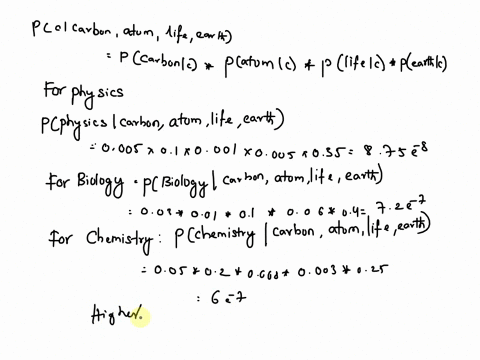 P(c|carbon, atom, life, earth)
= P(carbon|c) * p(atom|c) * p(life|c) * p(earth|c)
For physics
P(physics | carbon, atom, life, earth)
= 0.005 * 0.1 * 0.001 * 0.005 * 0.35 = 8.75 e^-8
For Biology = p(Biology | carbon, atom, life, earth)
= 0.03 * 0.01 * 0.1 * 0.006 * 0.4 = 7.2 e^-7
For Chemistry : p(chemistry | carbon, atom, life, earth)
= 0.05 * 0.2 * * 0.003 * 0.25
= 6 e^-7
Higher.